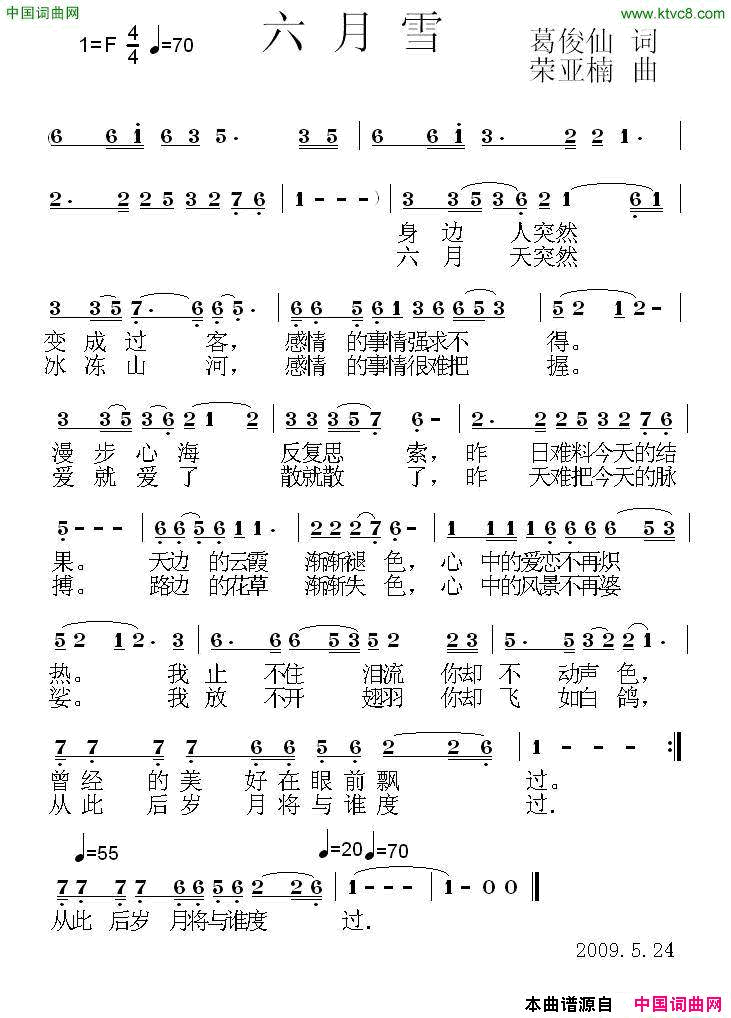 中国词曲网
www.ktvc8.com
六月雪
1=F 4/4 ♩=70
葛俊仙 词
荣亚楠 曲
(6 6i 6 3 5· 3 5 | 6 6i 3· 2 2 1· |
2· 2 2 5 3 2 7 6 | 1 - - ·) | 3 3 5 3 6 2 1 6 1 |
身 边 人突然
六 月 天突然
3 3 5 7· 6 6 5· | 6 6 5 6 1 3 6 6 6 5 3 | 5 2 1 2 - |
变 成 过 客， 感情 的事情强求不 得。
冰 冻 山 河， 感情 的事情很难把 握。
3 3 5 3 6 2 1 2 | 3 3 3 5 7 6 - | 2· 2 2 5 3 2 7 6 |
漫 步 心 海 反复思 索，昨 日难料今天的结
爱 就 爱 了 散就散 了，昨 天难把今天的脉
5 - - - | 6 6 5 6 1 1· | 2 2 2 7 6 - | 1 1 1 1 6 6 6 6 5 3 |
果。 天边 的云霞 渐渐褪 色，心 中的爱恋不再炽
搏。 路边 的花草 渐渐失 色，心 中的风景不再婆
5 2 1 2· 3 | 6· 6 6 5 3 5 2 2 3 | 5· 5 3 2 2 1 |
热。 我 止 不住 泪流 你却 不 动声 色，
娑。 我 放 不开 翅羽 你却 飞 如白 鸽，
7 7 7 7 6 6 5 6 2 2 6 | 1 - - - :||
曾 经 的 美 好 在 眼 前 飘 过。
从 此 后 岁 月 将 与 谁 度 过.
♩=55 ♩=20 ♩=70
7 7 7 7 6 6 5 6 2 2 6 | 1 - - - | 1 - 0 0 ||
从此 后岁 月将与谁度 过.
2009.5.24
本曲谱源自 中国词曲网